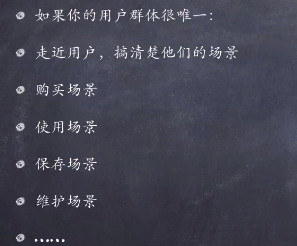 如果你的用户群体很唯一：
走近用户，搞清楚他们的场景
购买场景
使用场景
保存场景
维护场景
……